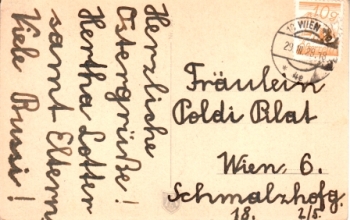 Herzliche
Ostergrüße!
Hertha Lotter
samt Eltern
Viele Bussi!
WIEN
Fräulein
Poldi Plat
Wien 6.
Schmalzhofg.
18. 2/8.